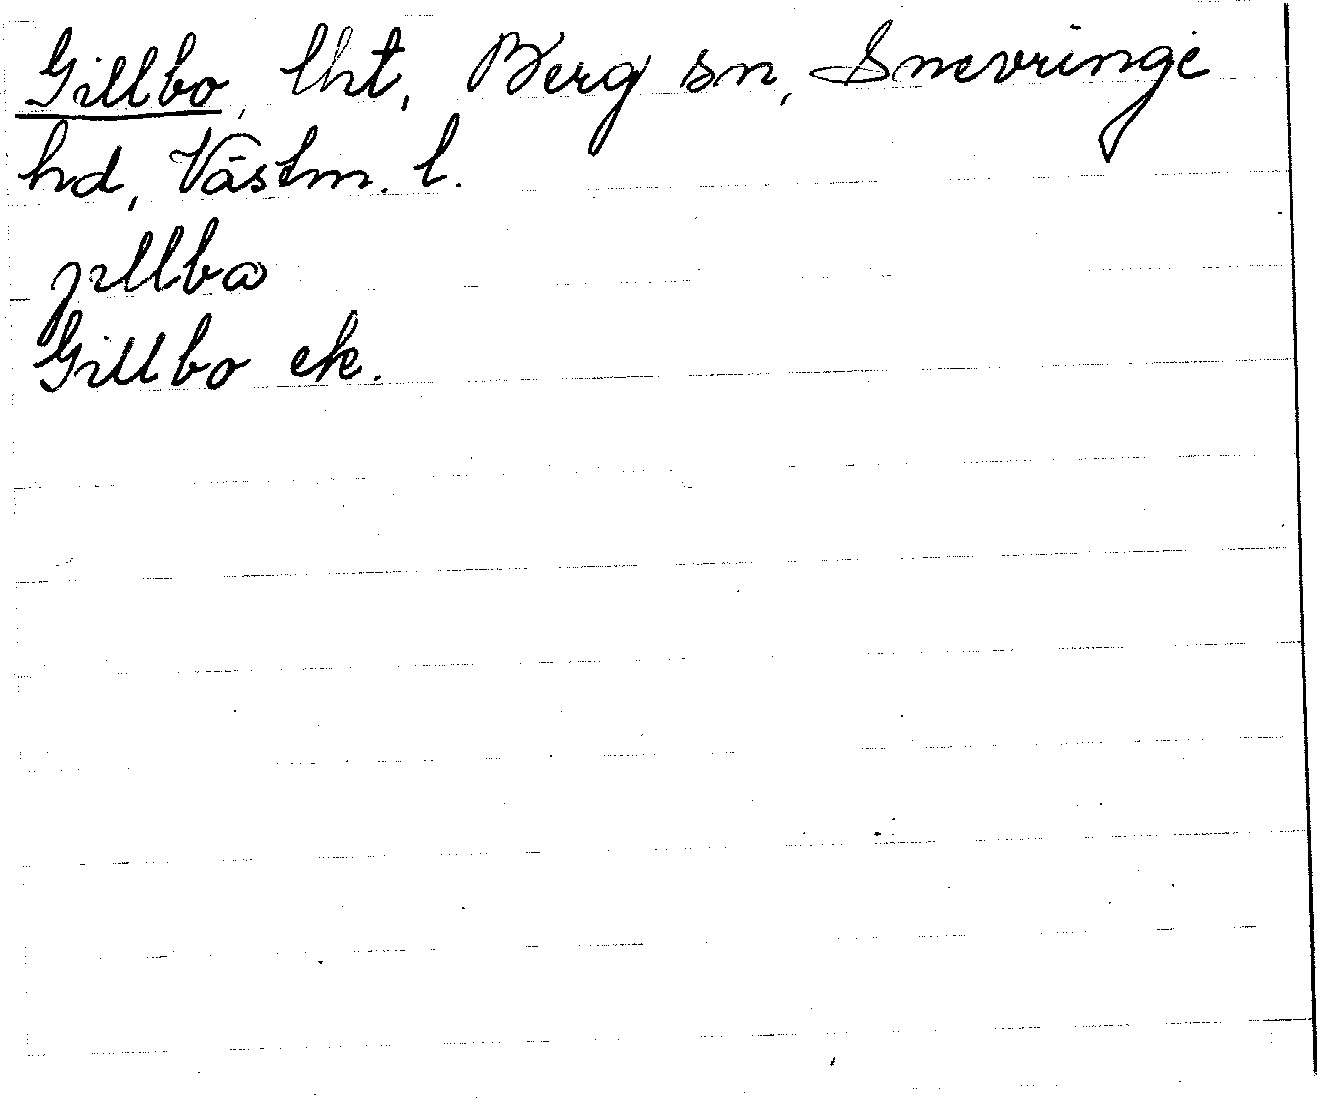 Gillbo, lht, Berg sn, Snevringe
hd, Västm. l.
jıllbω
Gillbo ek.